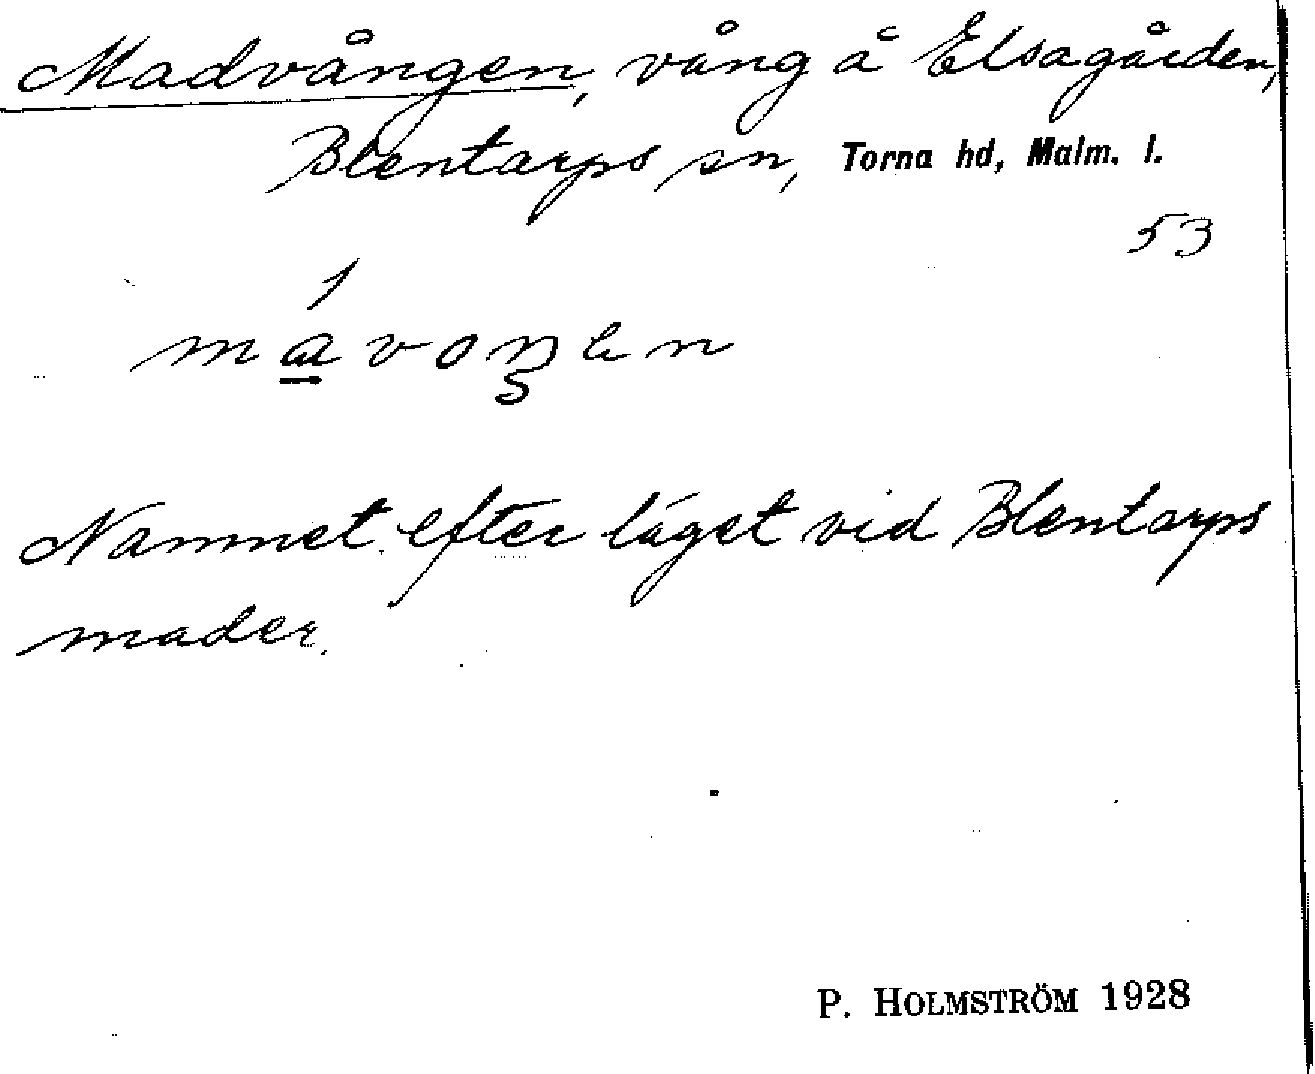 Madvången, vång å Elsagården,
Blentarps sn, Torna hd, Malm. l.
53
Namnet efter läget vid Blentarps
mader.
P. HOLMSTRÖM 1928